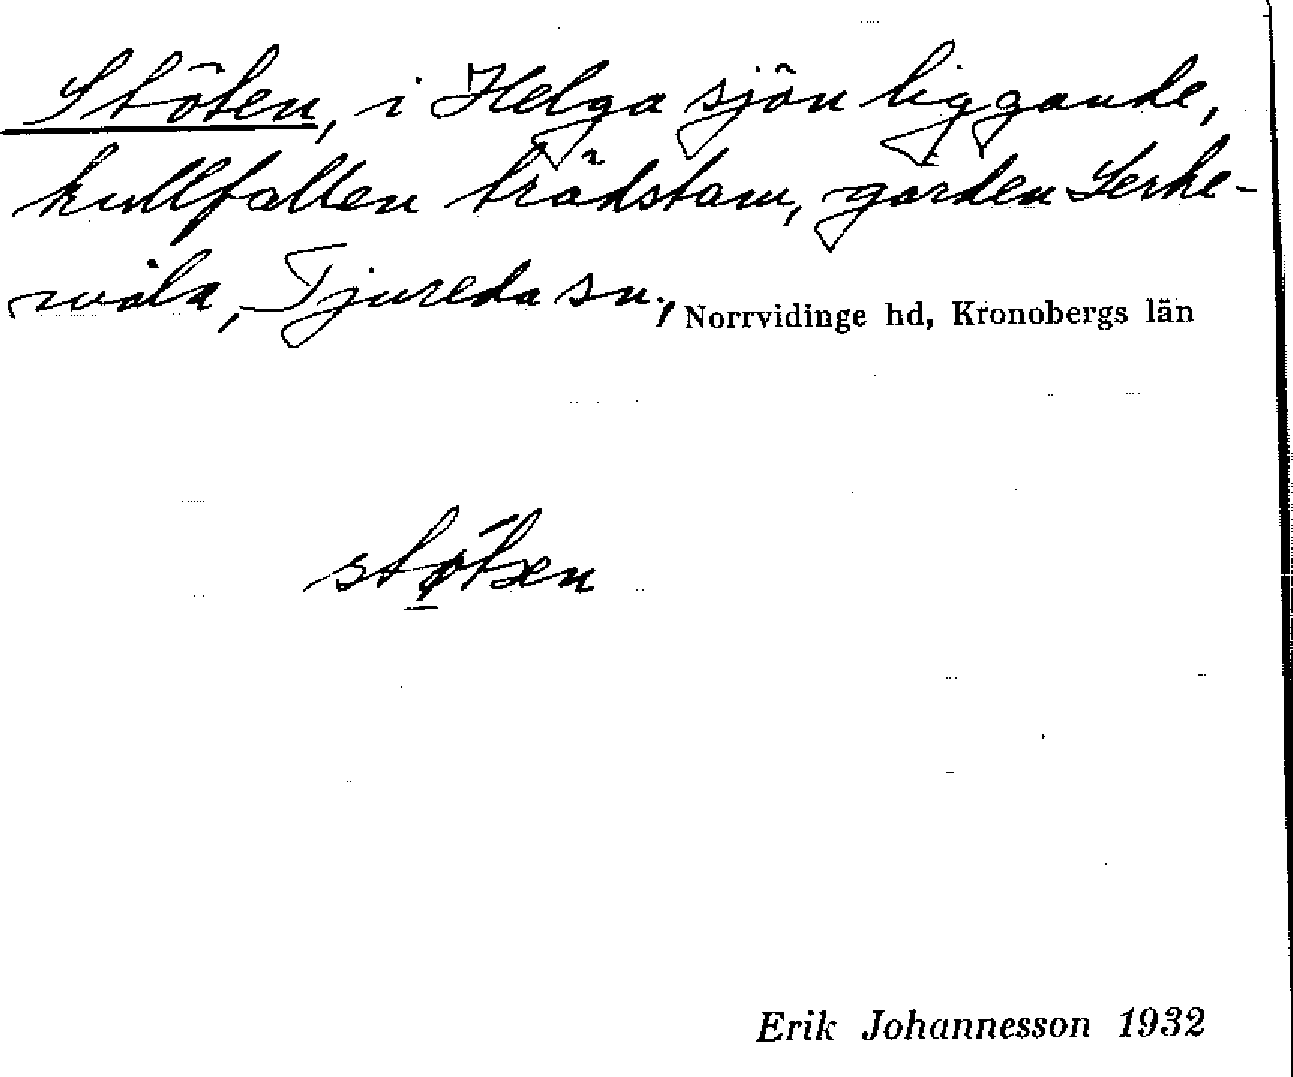 Stöten, i Helga sjön liggande,
kullfallen trädstam, gården Lerke-
måla, Tjureda sn., Norrvidinge hd, Kronobergs län
Erik Johannesson 1932